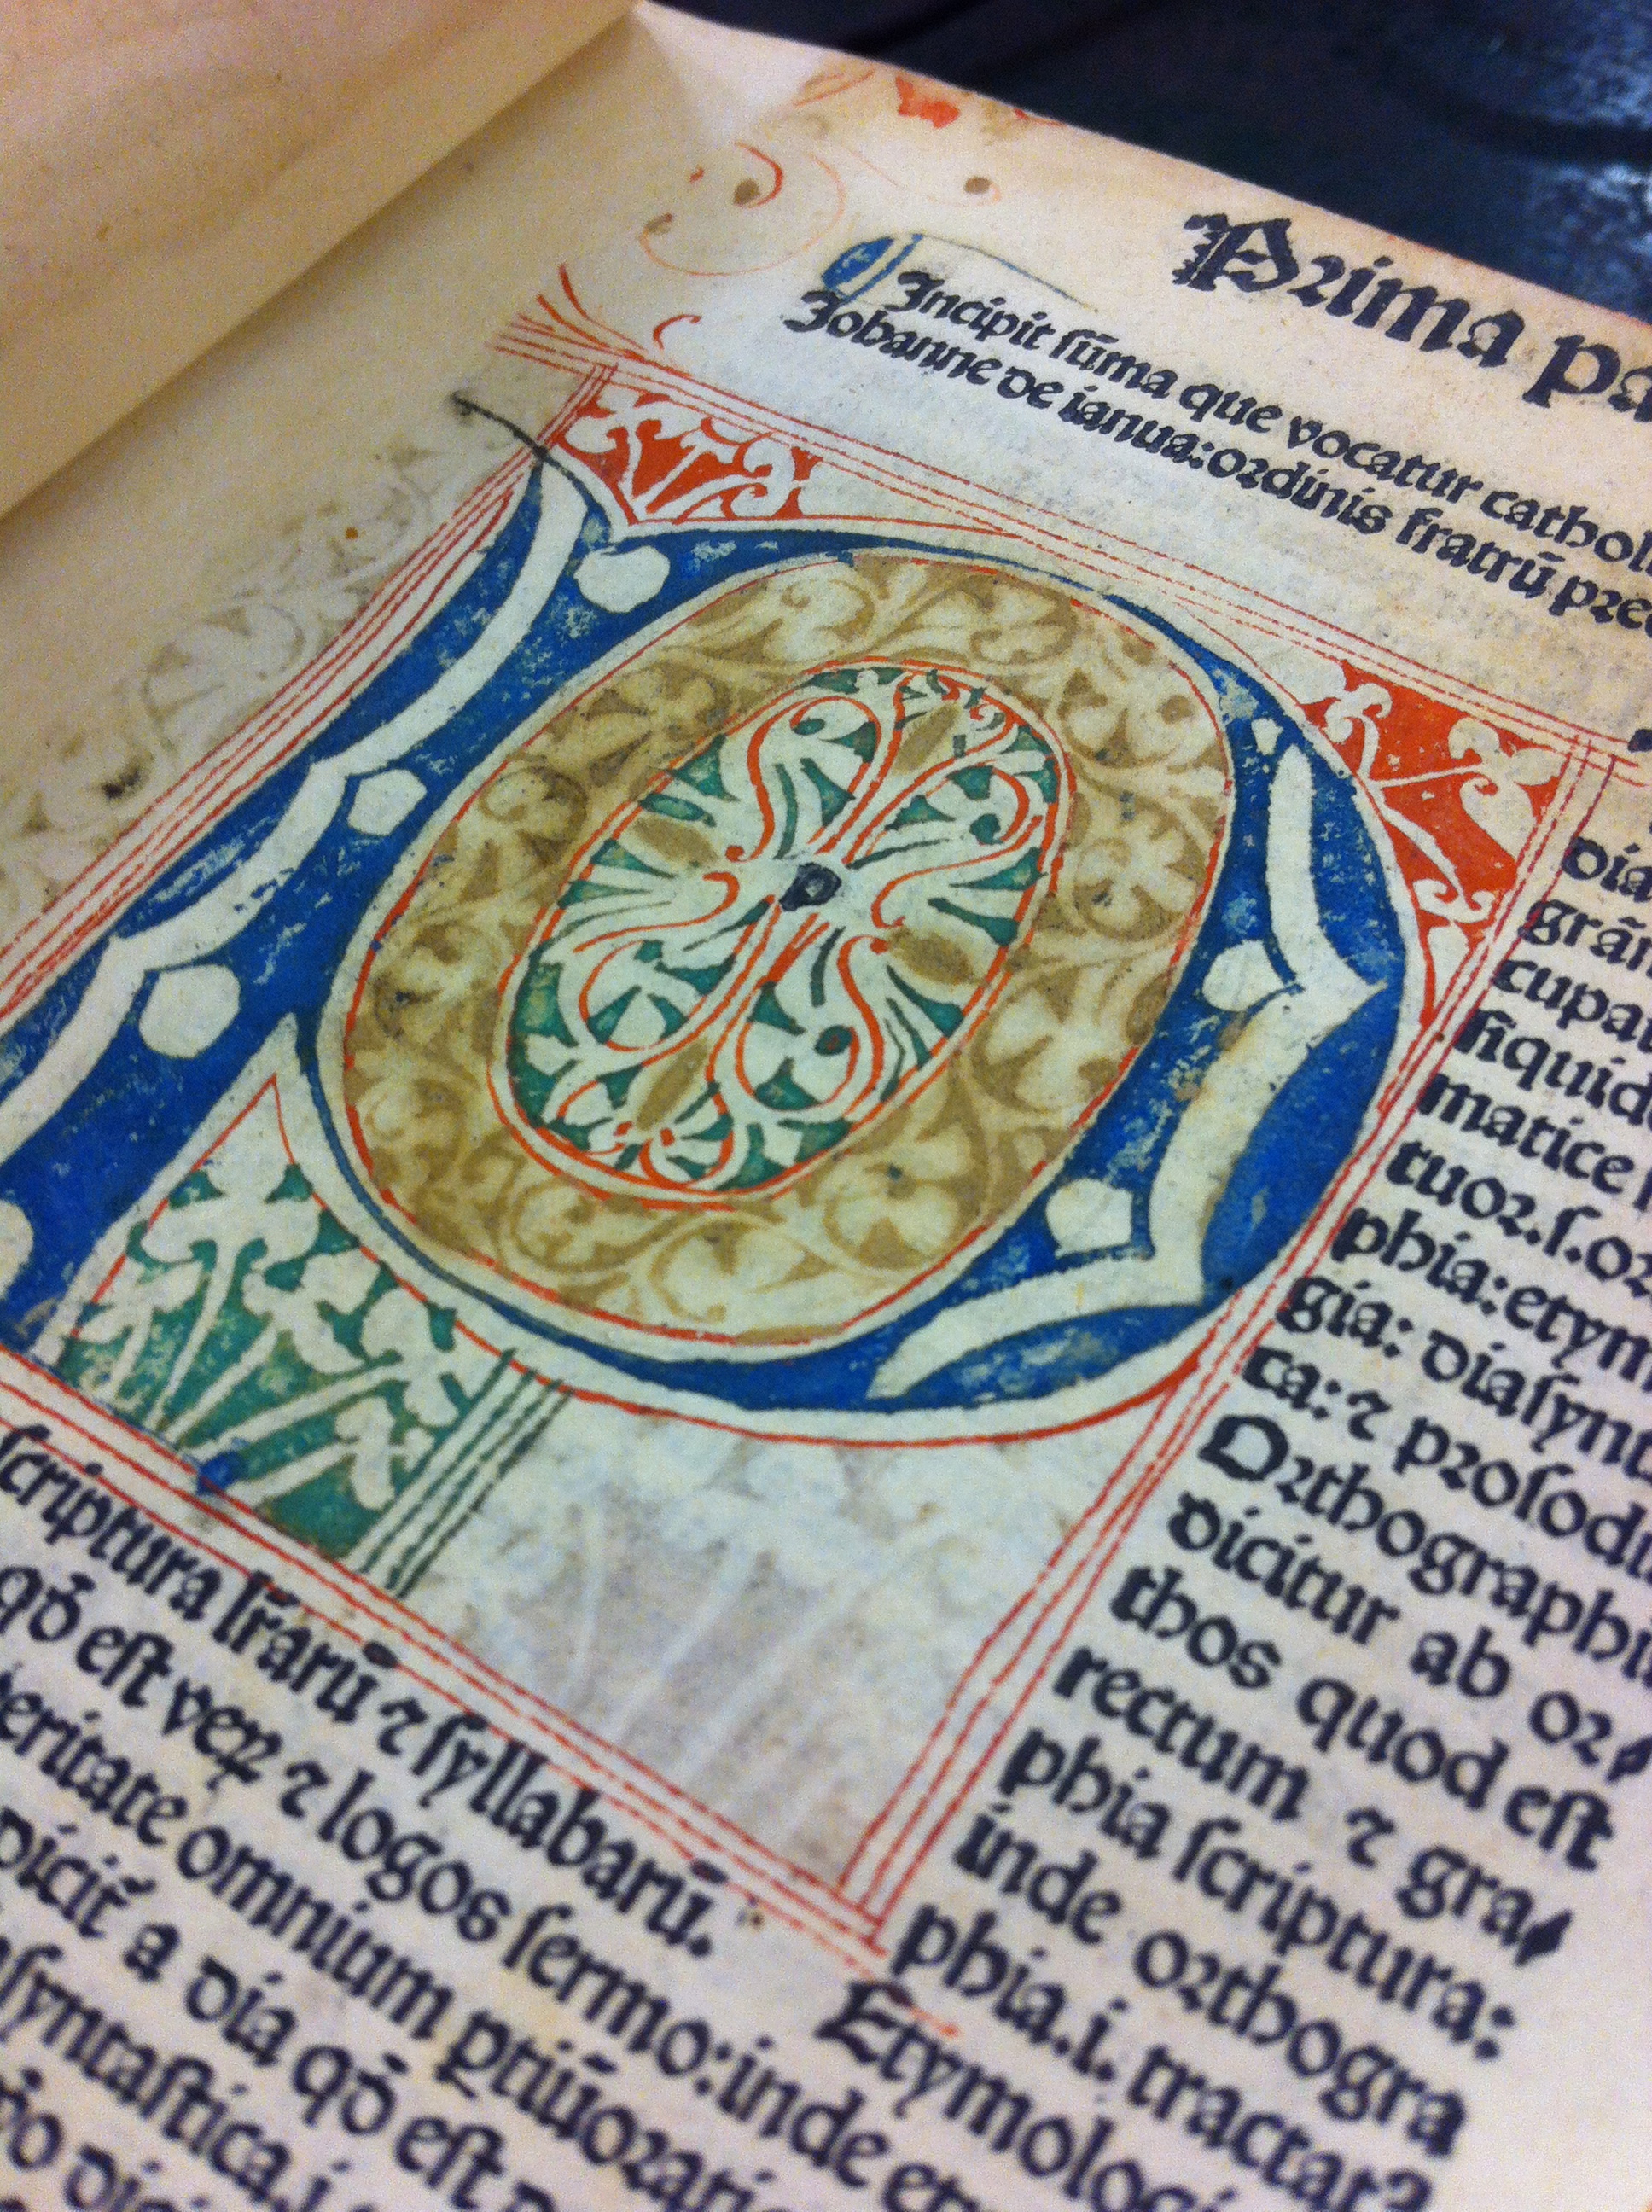 Prima pa
Incipit sūma que vocatur cathol
Johanne de ianua: ordinis fratrū pre
P
dia
grām
cupa
siquid
matice
tuor.s.or
phia: etym
gia: diasynt
ta: ⁊ prosodi
Orthographi
dicitur ab or⸗
thos quod est
rectum ⁊ gra⸗
phia scriptura:
inde orthogra
phia.i. tractat
Etymolog
scriptura lr̄arū ⁊ syllabarū.
qđ est veꝝ ⁊ logos sermo: inde et
eritate omnium ꝑtiū orati
dicit̄ a dia qđ est
syntastica.i.